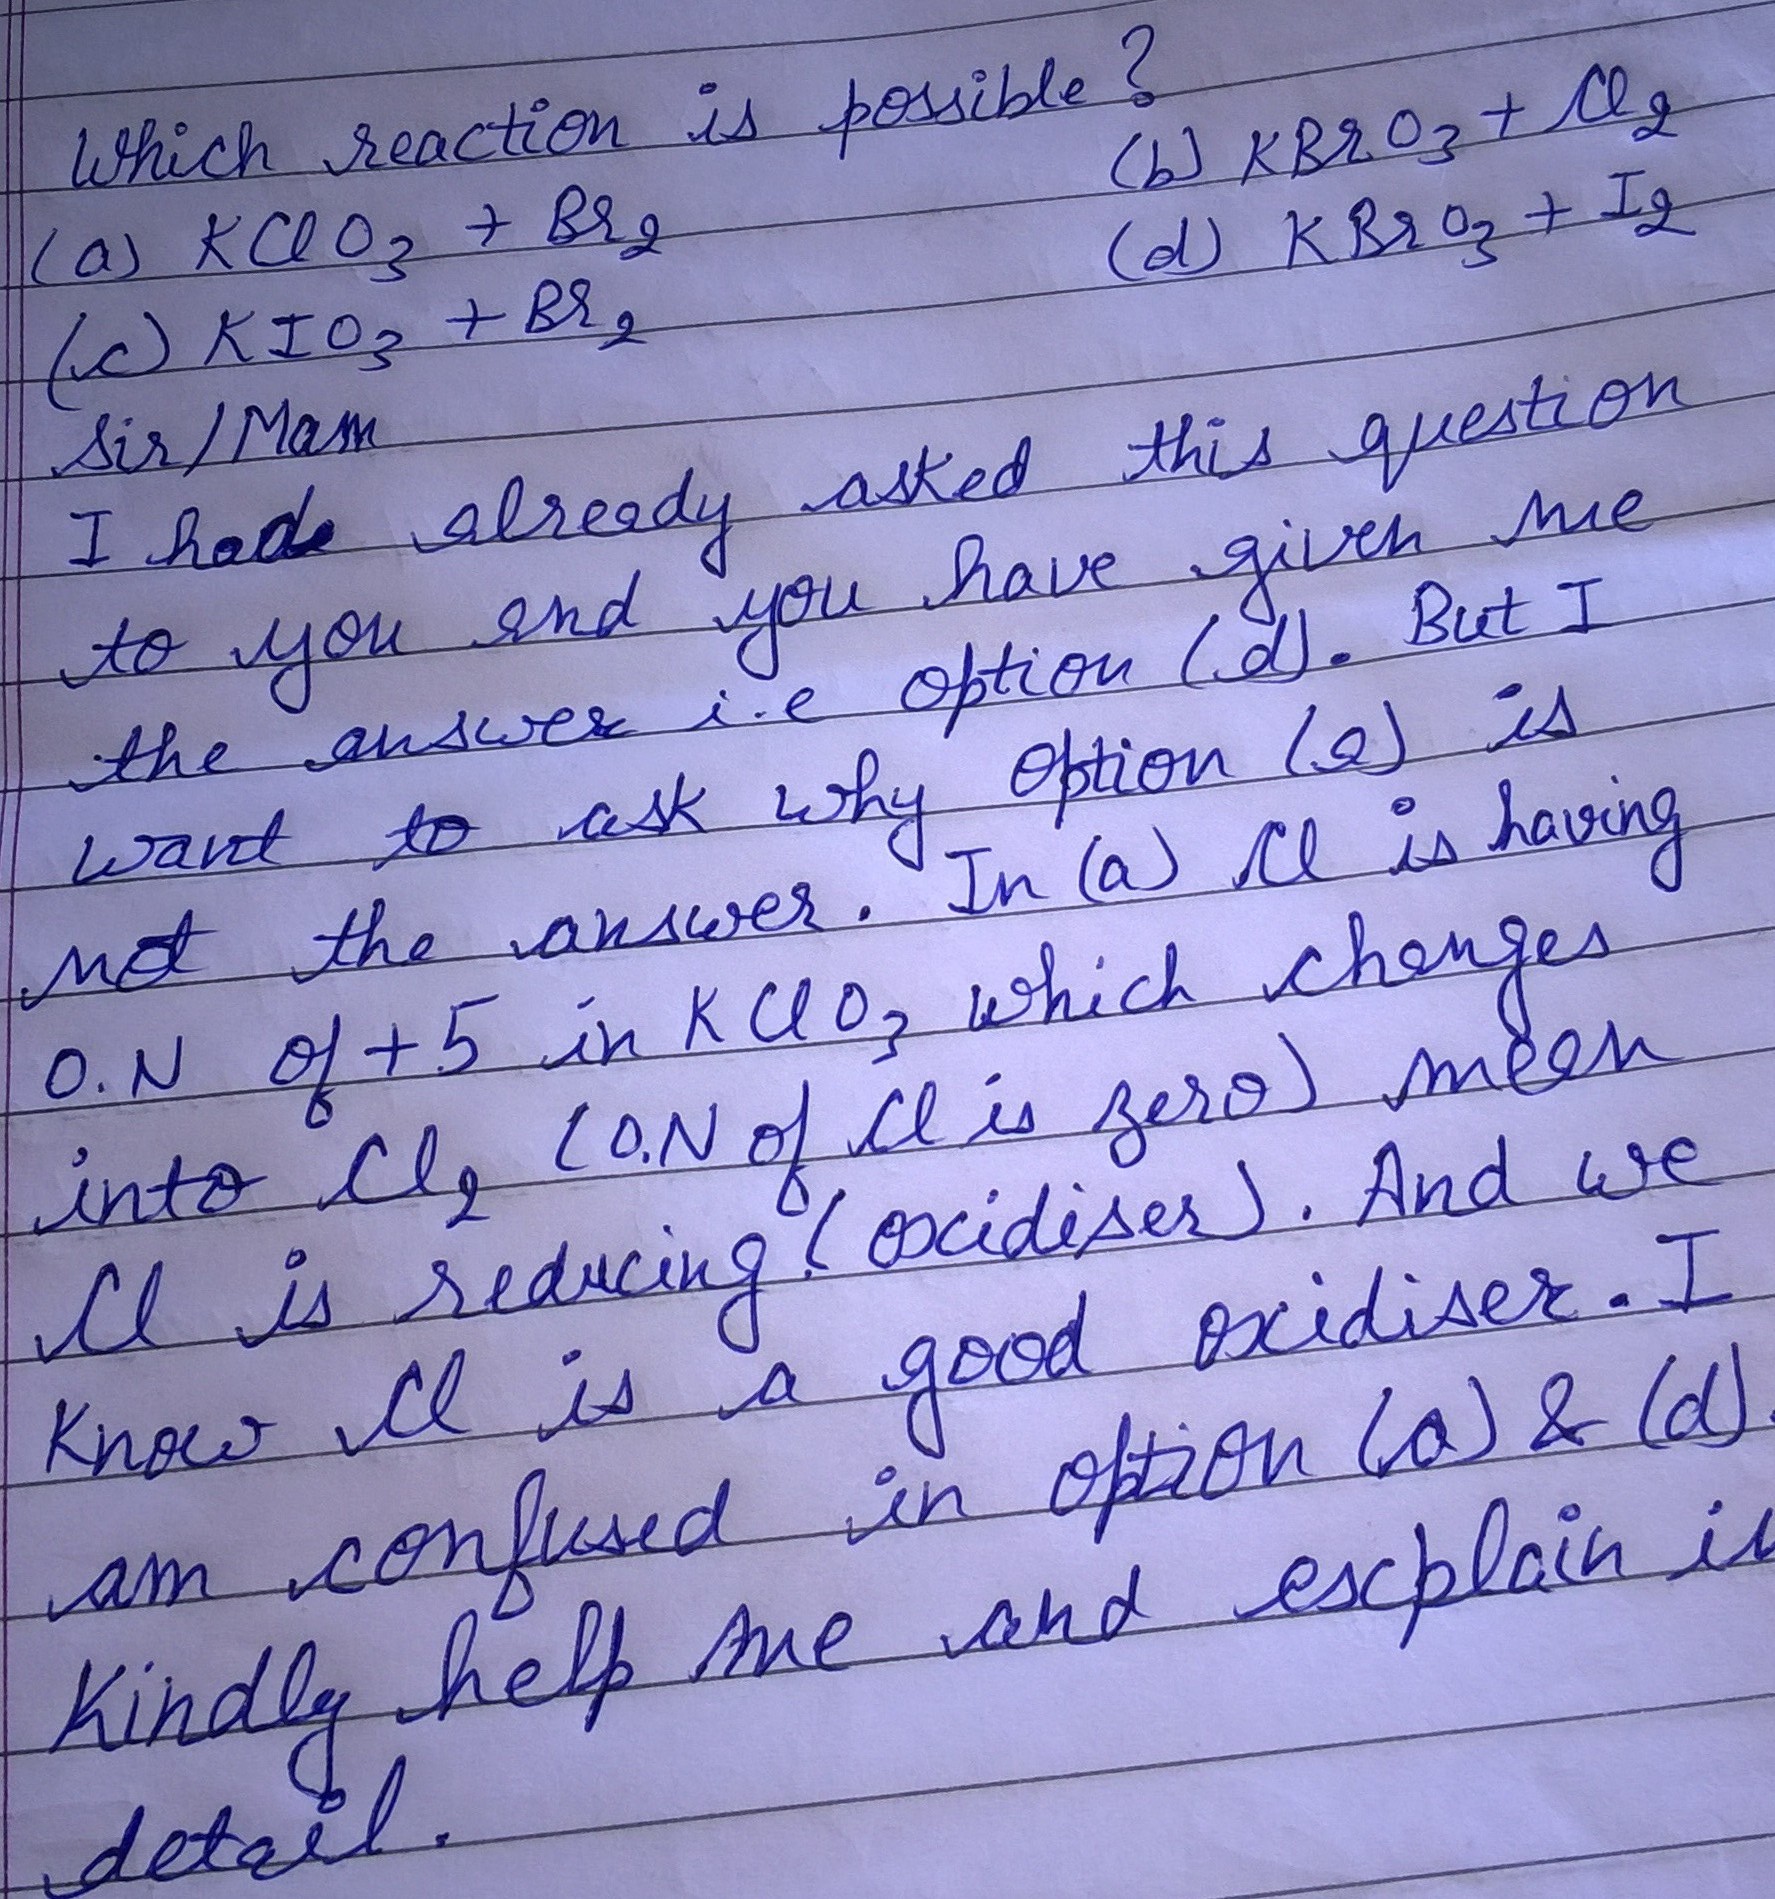 Which reaction is possible?
(a) KClO3 + Br2 (b) KBrO3 + Cl2
(c) KIO3 + Br2 (d) KBrO3 + I2
Sir/Mam
I hade already asked this question
to you and you have given me
the answer i.e option (d). But I
want to ask why option (a) is
not the answer. In (a) Cl is having
O.N of +5 in KClO3 which changes
into Cl2 (O.N of Cl is zero) mean
Cl is reducing (oxidiser). And we
know Cl is a good oxidiser. I
am confused in option (a) & (d)
Kindly help me and explain in
detail.